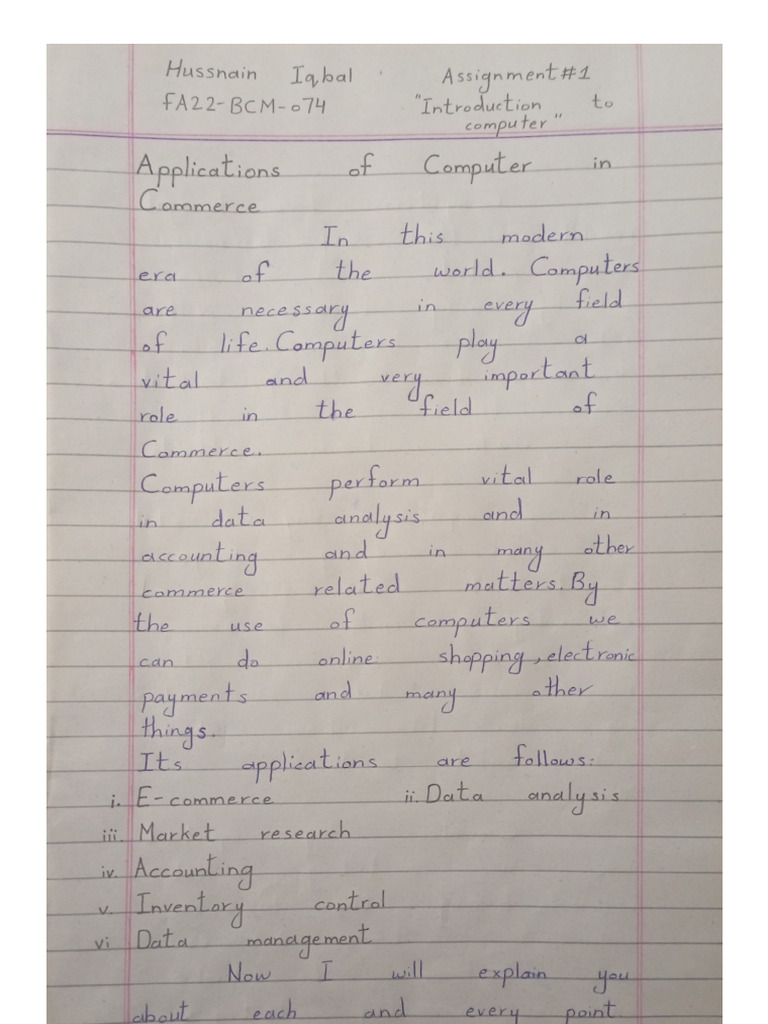 Hussnain Iqbal Assignment#1
FA22-BCM-074 "Introduction to
computer"
Applications of Computer in
Commerce
In this modern
era of the world. Computers
are necessary in every field
of life. Computers play a
vital and very important
role in the field of
Commerce.
Computers perform vital role
in data analysis and in
accounting and in many other
commerce related matters. By
the use of computers we
can do online shopping, electronic
payments and many other
things.
Its applications are follows:
i. E-commerce ii. Data analysis
iii. Market research
iv. Accounting
v. Inventory control
vi Data management
Now I will explain you
about each and every point